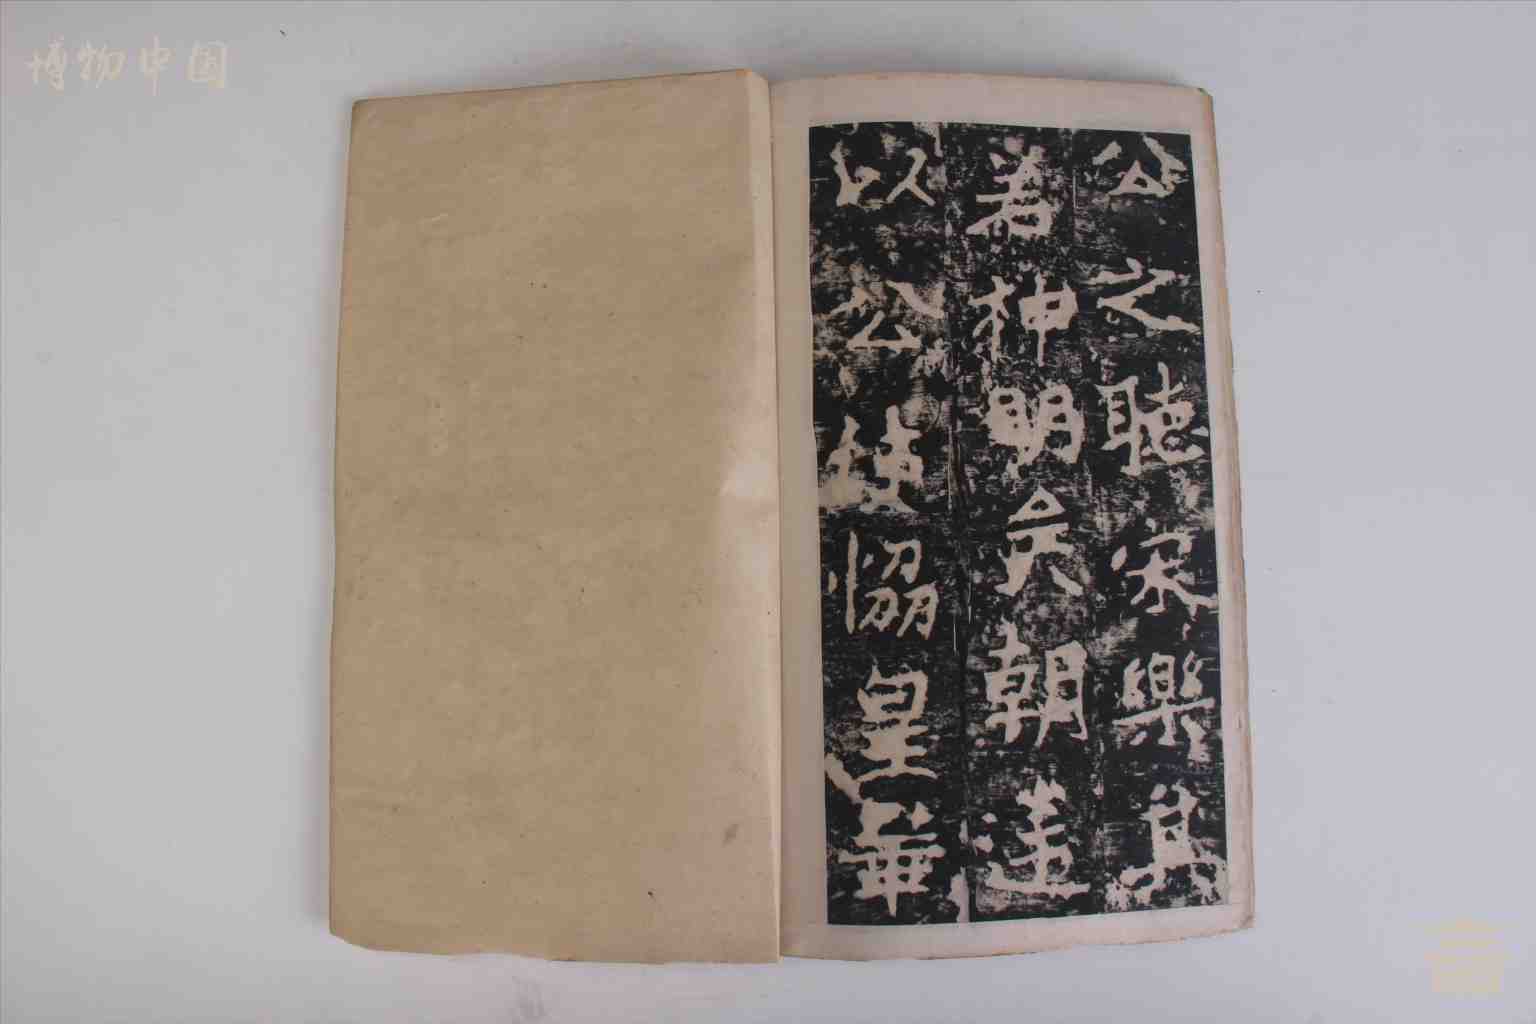 博物中国
公之聽宋樂其
若神明矣朝達
以公使恊皇華